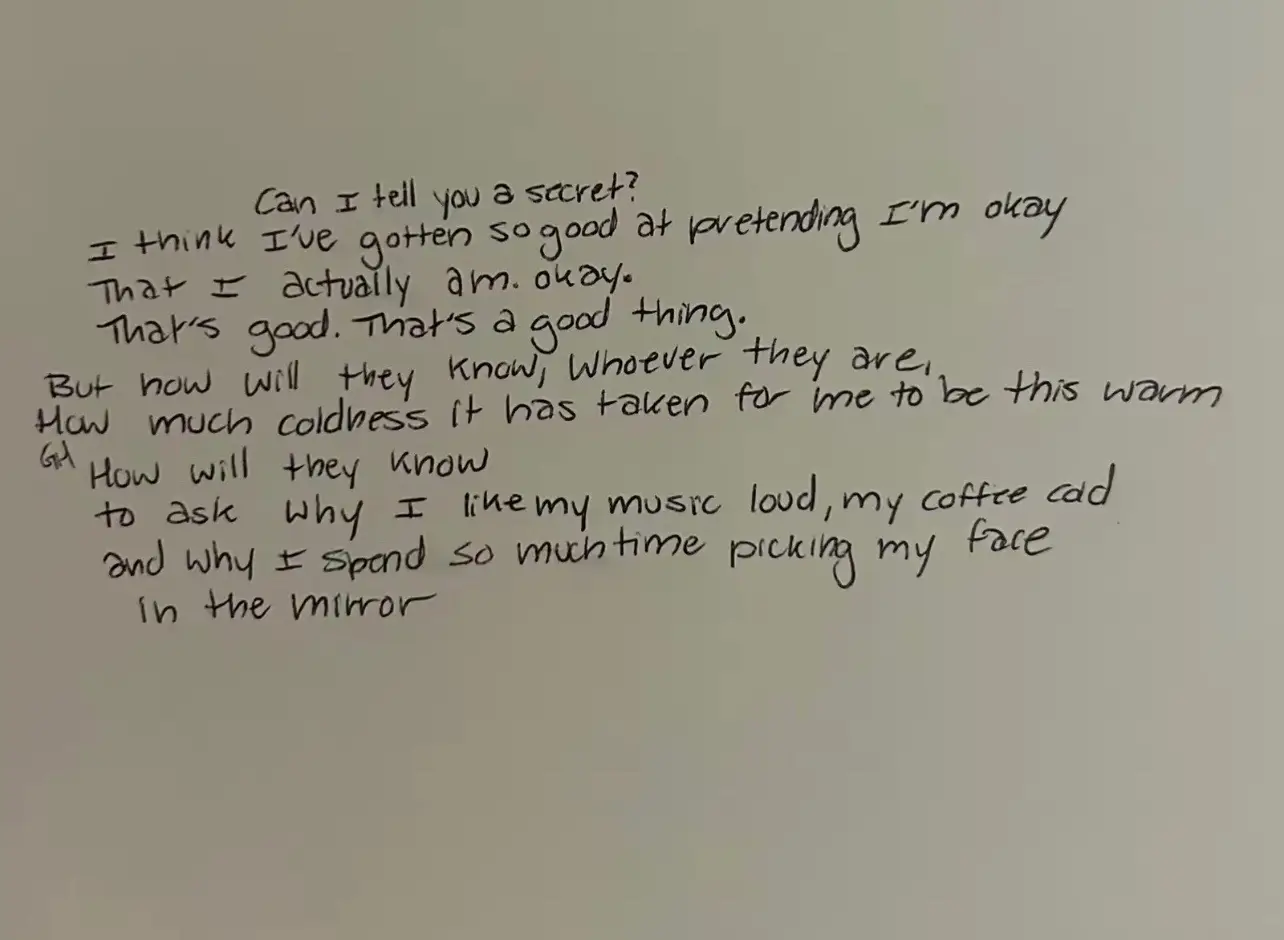 Can I tell you a secret?
I think I've gotten so good at pretending I'm okay
That I actually am. okay.
That's good. That's a good thing.
But how will they know, whoever they are,
How much coldness it has taken for me to be this warm
How will they know
to ask why I like my music loud, my coffee cold
and why I spend so much time picking my face
in the mirror